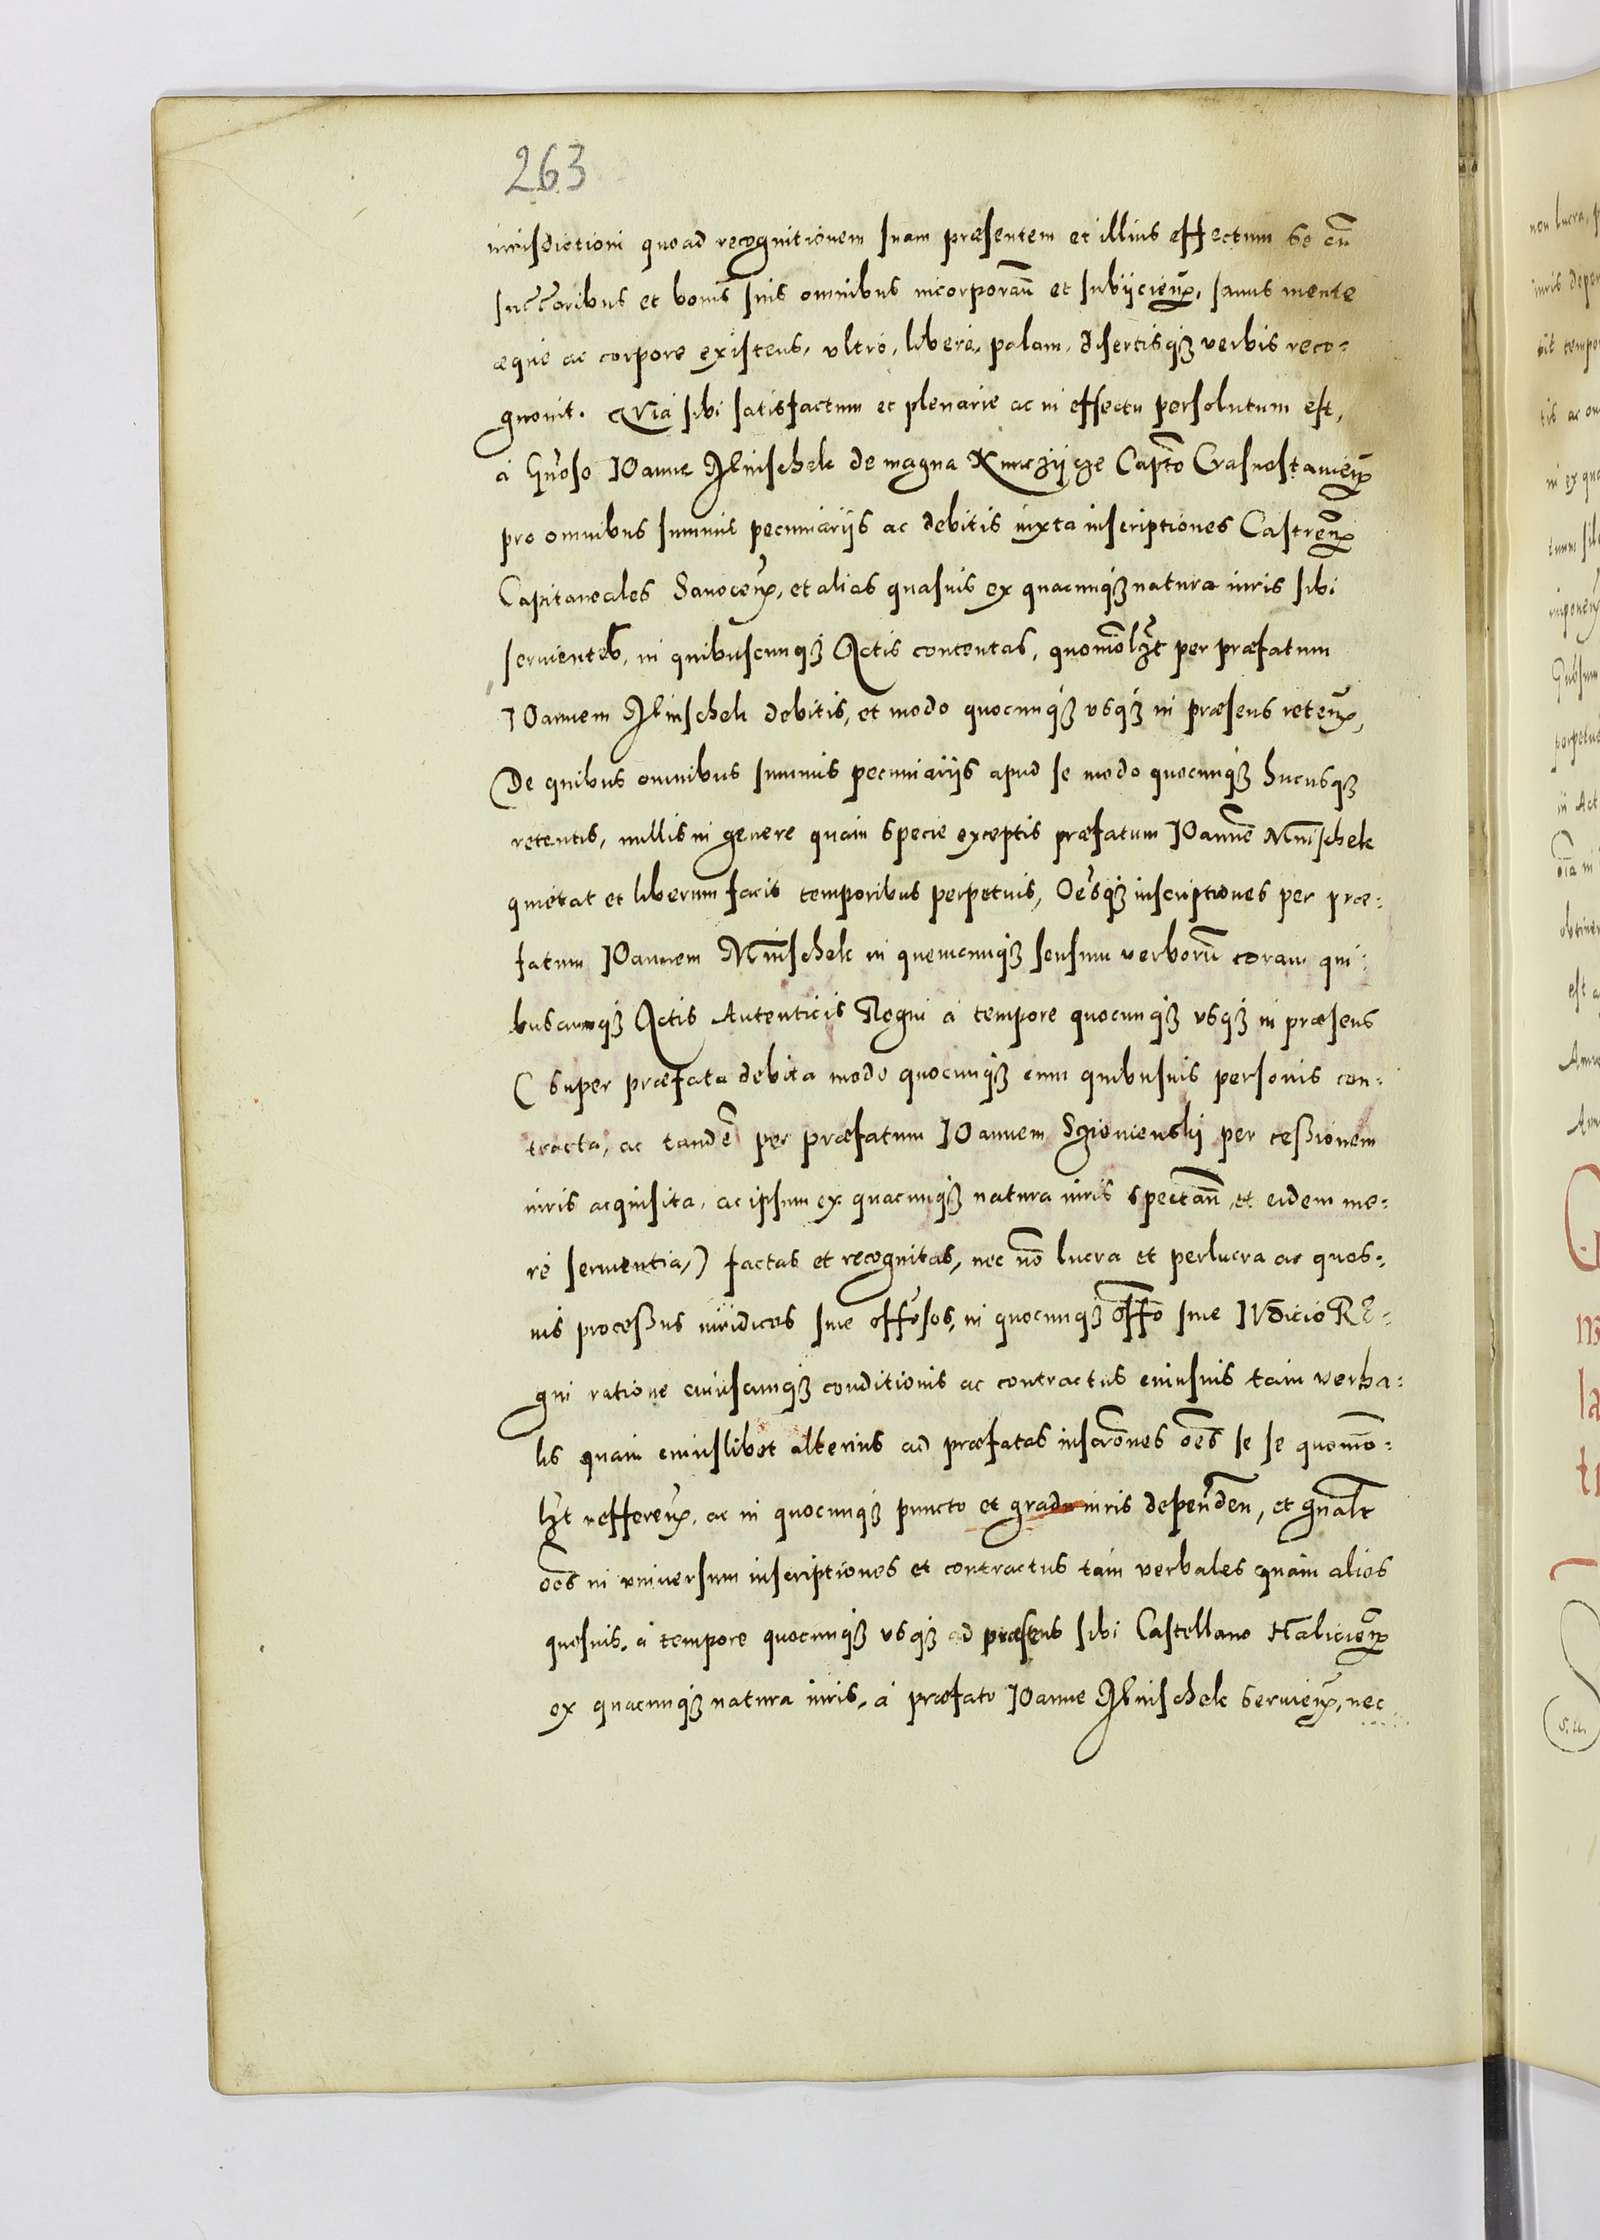 263
iurisdictioni quoad recognitionem suam præsentem et illius effectum se cū
succ̃oribus et bonis suis omnibus incorporañ et subijcieñ, sanus mente
æque ac corpore existens, ultro, libere, palam, disertisq₃ verbis reco=
gnovit. Quia sibi satisfactum et plenarie ac in effectu persolutum est,
à Gñoso Ioanne Mnischek de magna Kunczijcze Capt̃o Crasnostavieñ
pro omnibus summis pecuniarijs ac debitis iuxta inscriptiones Castreñ
Capitaneales Sanoceñ, et alias quasuis ex quacunq₃ natura iuris sibi
seruienteˢ, in quibuscunq₃ Actis contentas, quomõlȝt per præfatum
Ioannem Mnischek debitis, et modo quocunq₃ usq₃ in præsens reteñ,
De quibus omnibus summis pecuniarijs apud se modo quocunq₃ hucusq₃
retentis, nullis in genere quam specie exceptis præfatum Ioannē Mnischek
quietat et liberum facit temporibus perpetuis, Oẽsq₃ inscriptiones per præ=
fatum Ioannem Mnischek in quemcunq₃ sensum verborū coram qui=
buscumq₃ Actis Autenticis Regni à tempore quocunq₃ usq₃ in præsens
(super præfata debita modo quocunq₃ cum quibusuis personis con=
tracta, ac tandē per præfatum Ioannem Sienienskij per cessionem
iuris acquisita, ac ipsum ex quacunq₃ natura iuris spectañ, et eidem me=
re seruientia,) factas et recognitas, nec nõ lucra et perlucra ac quos=
uis processus iuridicos siue offõsos, in quocunq₃ offõ siue Iudicio Re=
gni ratione cuiuscunq₃ conditionis ac contractus cuiusuis tam verba=
lis quam cuiuslibet alterius ad præfatas inscrõnes oẽs se se quomõ=
lȝt reffereñ, ac in quocunq₃ puncto et gradu iuris dependeñ, et gñalr
oẽs in universum inscriptiones et contractus tam verbales quam alios
quosuis, à tempore quocunq₃ usq₃ ad præsens sibi Castellano Halicieñ
ex quacunq₃ natura iuris, à præfato Ioanne Mnischek seruieñ, nec